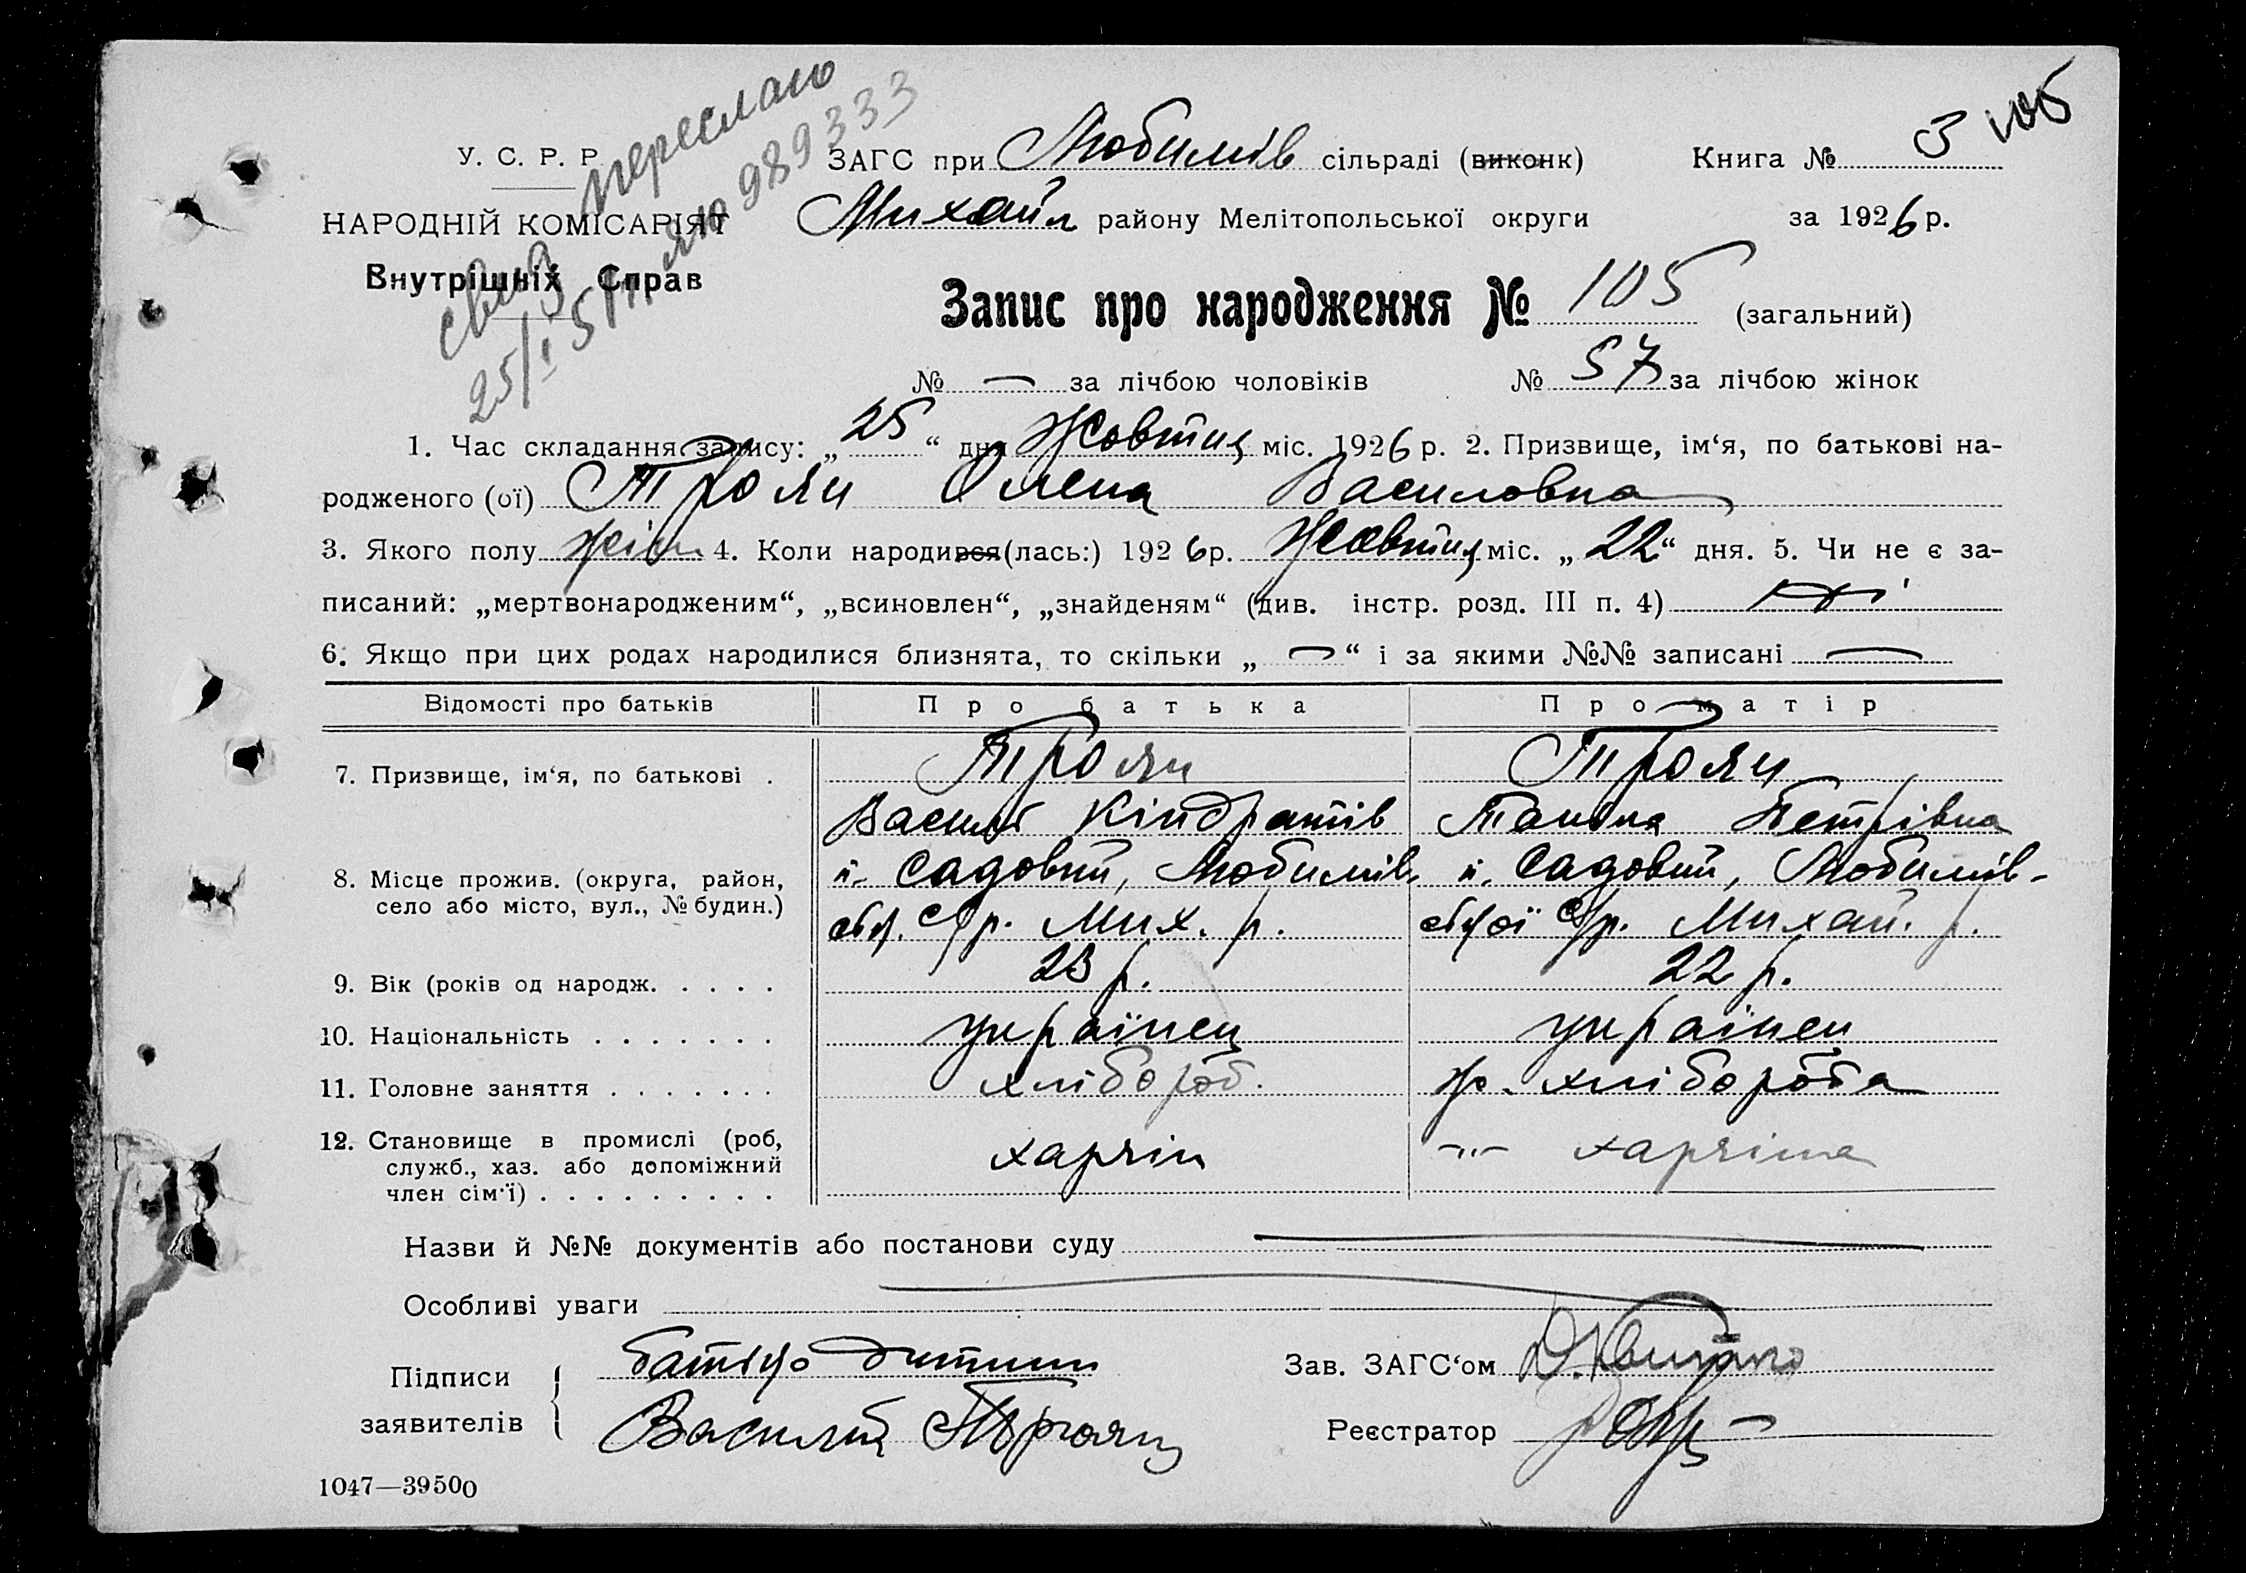 105
У. С. Р. Р.
ЗАГС при Любимів сільраді (виконк)
Книга № 3
НАРОДНІЙ КОМІСАРІЯТ
Михайл району Мелітопольської округи
за 1926 р.
Внутрішніх Справ
переслано
25/I 51 989333
Запис про народження № 105 (загальний)
№ — за лічбою чоловіків № 57 за лічбою жінок
1. Час складання запису: „25“ дня Жовтня міс. 1926 р. 2. Призвище, ім‘я, по батькові на-
родженого (ої) Троян Олена Василовна
3. Якого полу жіноч 4. Коли народився(лась:) 1926 р. Жовтня міс. „22“ дня. 5. Чи не є за-
писаний: „мертвонародженим“, „всиновлен“, „знайденям“ (див. інстр. розд. III п. 4) ні
6. Якщо при цих родах народилися близнята, то скільки „—“ і за якими №№ записані —
Відомості про батьків Про батька Про матір
7. Призвище, ім‘я, по батькові . Троян Троян
Василь Кіндратів Петрівна
8. Місце прожив. (округа, район, п. Садовий, Любимів- п. Садовий, Любимів-
село або місто, вул., № будин.) с/р. Мих. р. с/р. Михай. р.
9. Вік (років од народж. . . . . 23 р. 22 р.
10. Національність . . . . . . . українец українец
11. Головне заняття . . . . . . . хлібороб. ж. хлібороба
12. Становище в промислі (роб,
служб., хаз. або допоміжний
член сім‘ї) . . . . . . . . . .
Назви й №№ документів або постанови суду —
Особливі уваги —
Підписи батько дитини
заявителів Василий Троян
Зав. ЗАГС‘ом
Реєстратор
1047—39500